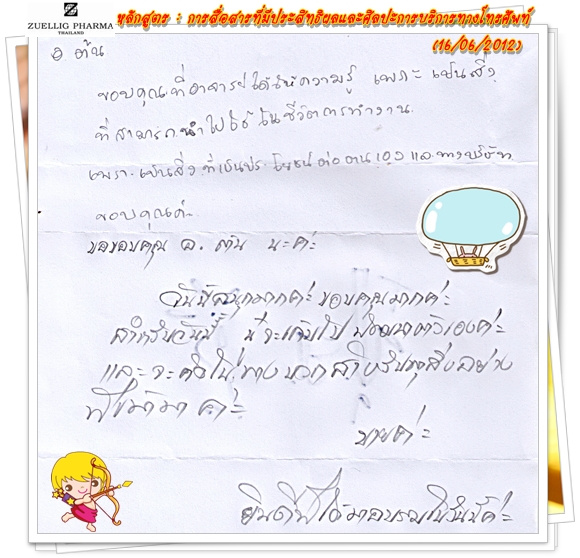 ZUELLIG PHARMA
THAILAND
หลักสูตร : การสื่อสารที่มีประสิทธิผลและศิลปะการบริการทางโทรศัพท์
(16/06/2012)
อ ต้น
ขอบคุณที่อาจารย์ได้ให้ความรู้ เพราะเป็นสิ่ง
ที่สามารถนำไปใช้ในชีวิตการทำงาน
เพราะเป็นสิ่งที่เป็นประโยชน์ต่อตนเองและทางบริษัท
ขอบคุณค่ะ
ขอขอบคุณ อ. ต้น นะค่ะ
วันนี้สนุกมากค่ะ ขอบคุณมากค่ะ
สำหรับวันนี้ จะกลับไปพัฒนาตัวเองค่ะ
และจะคิดในทางบวกสำหรับทุกสิ่งอย่าง
ค่ะ
บายค่ะ
ยินดีที่ได้มาอบรมในวันนี้ค่ะ